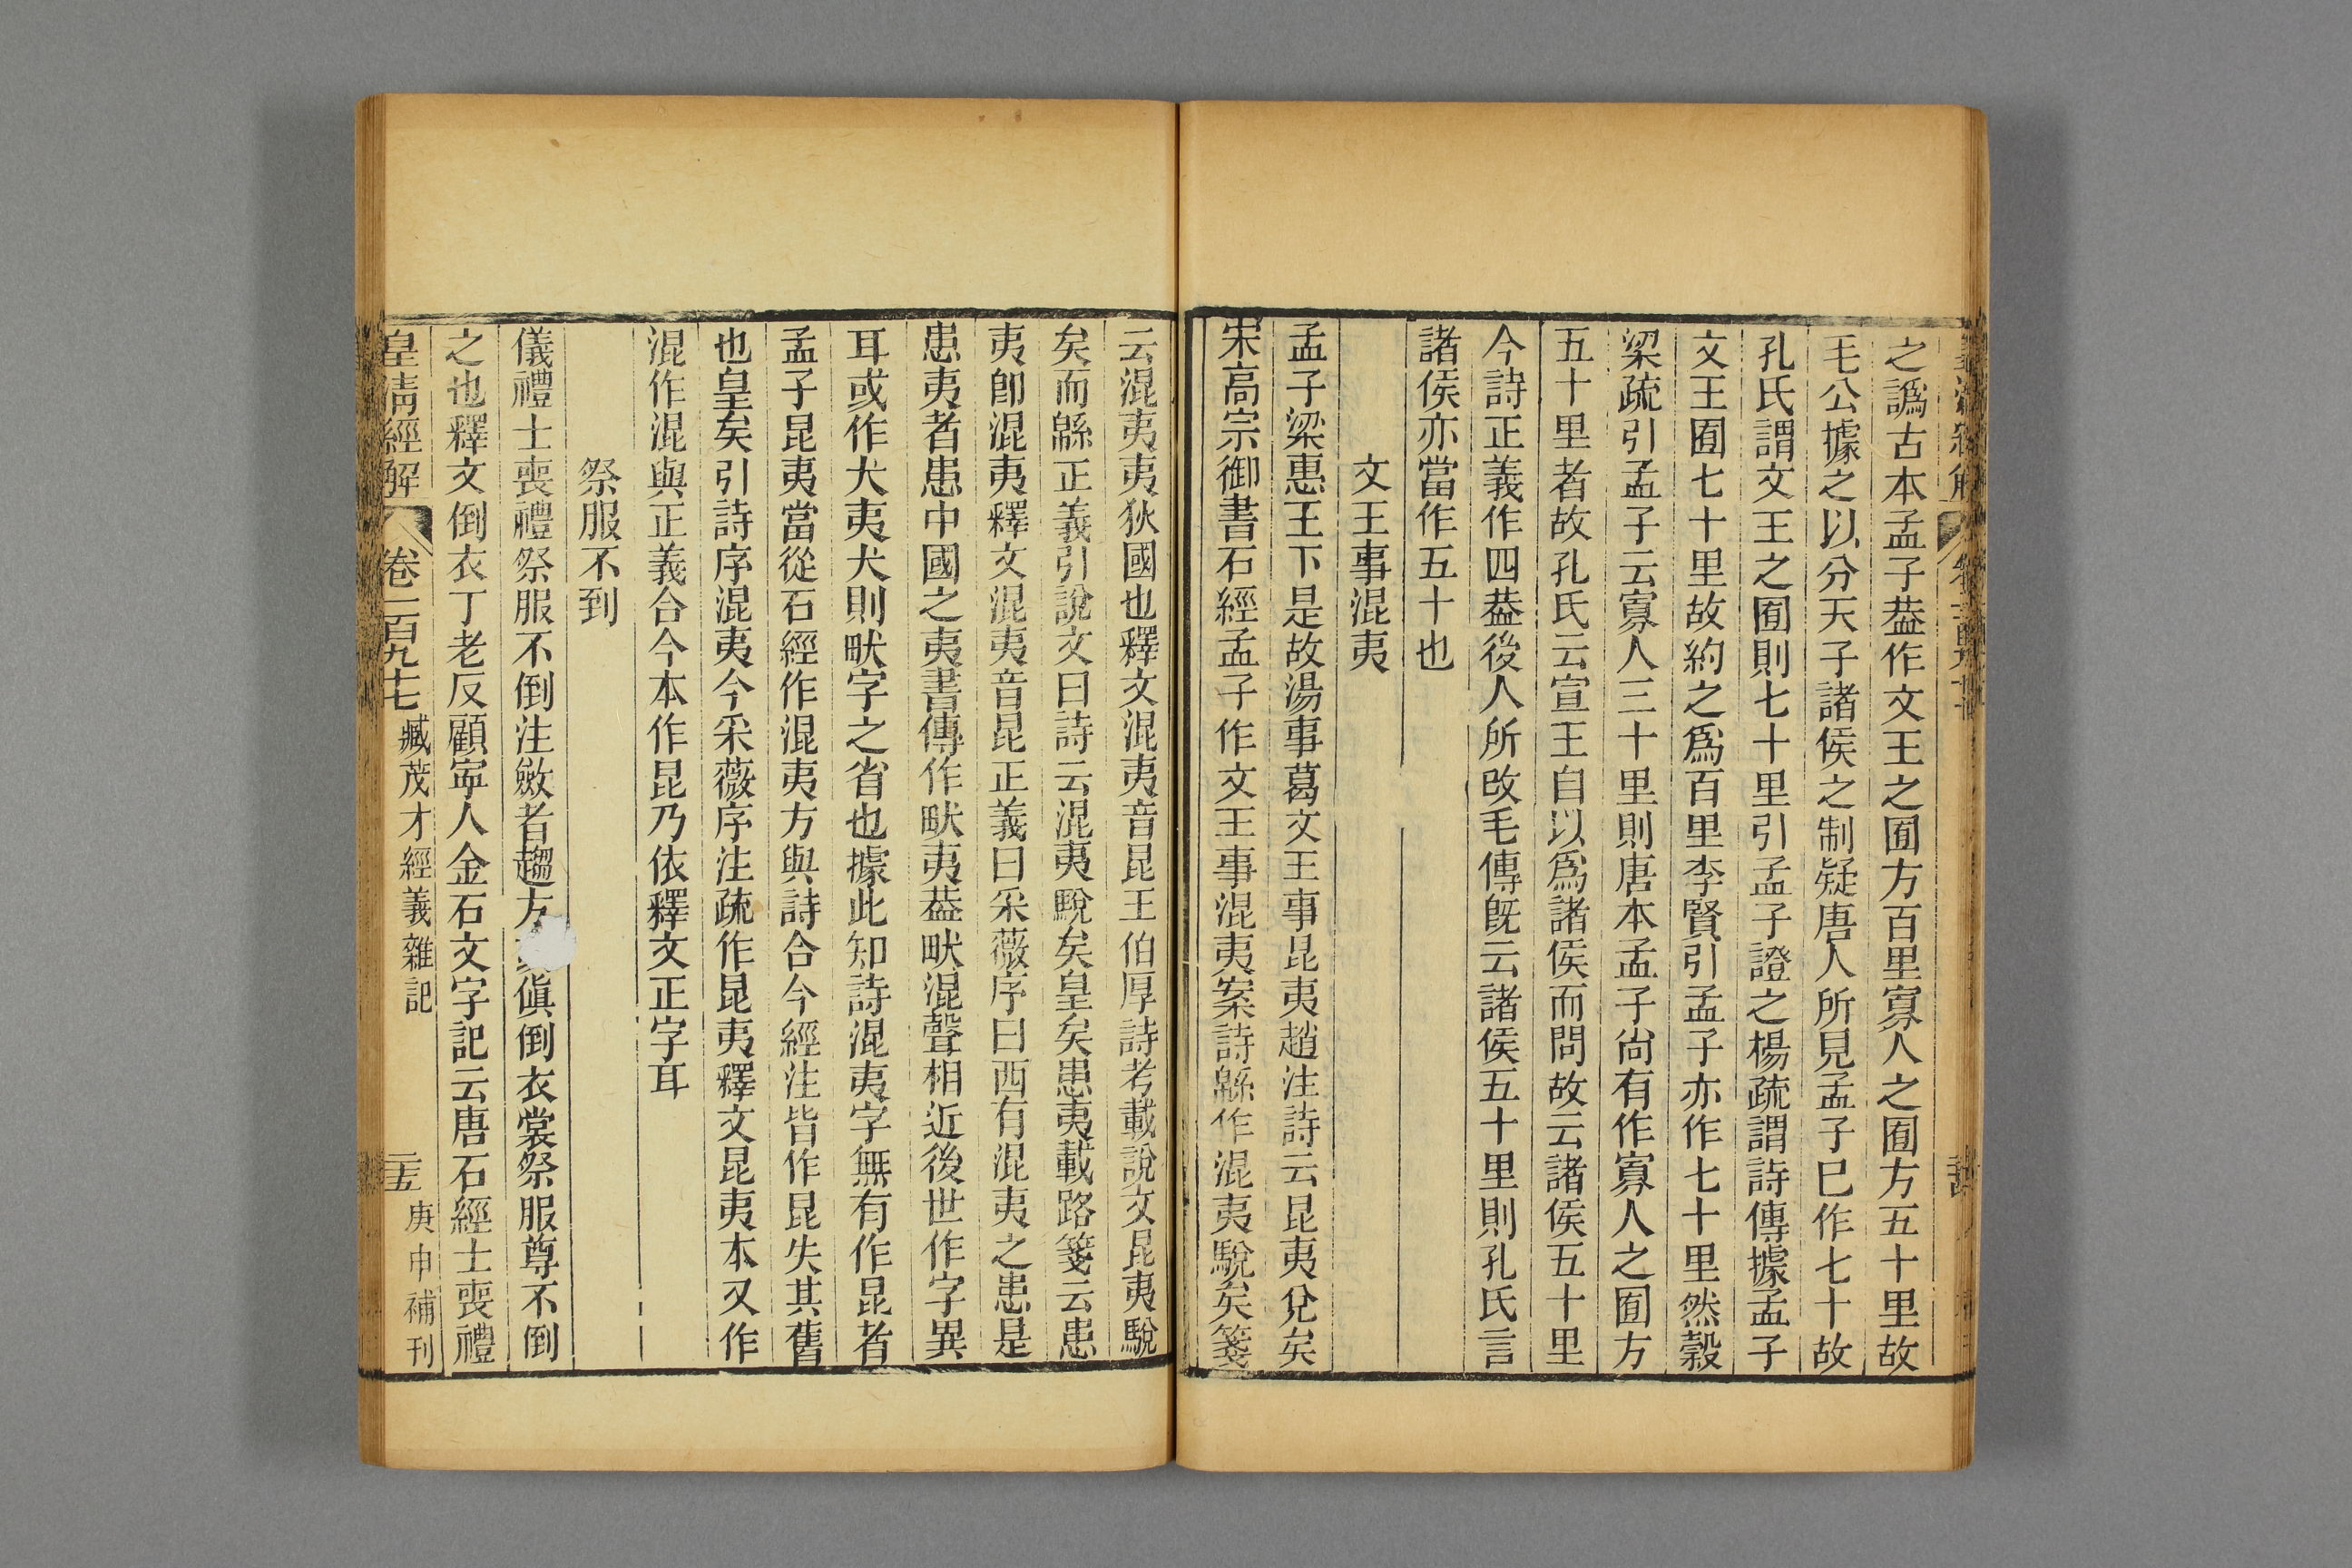 之譌古本孟子葢作文王之囿方百里寡人之囿方五十里故
毛公據之以分天子諸侯之制疑唐人所見孟子巳作七十故
孔氏謂文王之囿則七十里引孟子證之楊疏謂詩傳據孟子
文王囿七十里故約之爲百里李賢引孟子亦作七十里然穀
梁疏引孟子云寡人三十里則唐本孟子尙有作寡人之囿方
五十里者故孔氏云宣王自以爲諸侯而問故云諸侯五十里
今詩正義作四葢後人所改毛傳旣云諸侯五十里則孔氏言
諸侯亦當作五十也
文王事混夷
孟子梁惠王下是故湯事葛文王事昆夷趙注詩云昆夷兌矣
宋高宗御書石經孟子作文王事混夷案詩緜作混夷駾矣箋
云混夷夷狄國也釋文混夷音昆王伯厚詩考載說文昆夷駾
矣而緜正義引說文曰詩云混夷駾矣皇矣患夷載路箋云患
夷卽混夷釋文混夷音昆正義曰采薇序曰西有混夷之患是
患夷者患中國之夷書傳作畎夷葢畎混聲相近後世作字異
耳或作犬夷犬則畎字之省也據此知詩混夷字無有作昆者
孟子昆夷當從石經作混夷方與詩合今經注皆作昆失其舊
也皇矣引詩序混夷今采薇序注疏作昆夷釋文昆夷本又作
混作混與正義合今本作昆乃依釋文正字耳
祭服不到
儀禮士喪禮祭服不倒注斂者趨方顚倒衣裳祭服尊不倒
之也釋文倒衣丁老反顧寧人金石文字記云唐石經士喪禮
皇淸經解
卷二百九十七
臧茂才經義雜記
二五
庚申補刊